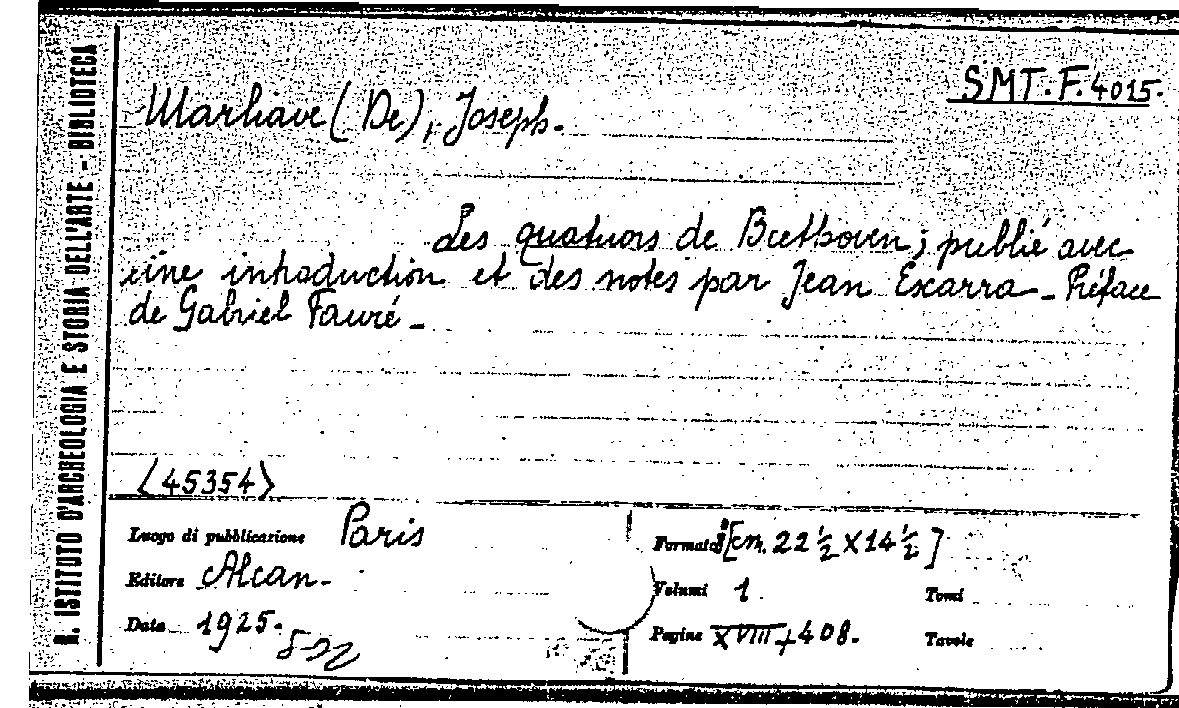 R. ISTITUTO D'ARCHEOLOGIA E STORIA DELL'ARTE - BIBLIOTECA
SMT.F.4015.
Marliave (De), Joseph.
Les quatuors de Beethoven; publié avec
une introduction et des notes par Jean Escarra - Préface
de Gabriel Fauré -
(45354)
Luogo di pubblicazione Paris
Editore Alcan.
Data 1925.
Formato 8° [cm. 22 ½ X 14 ½]
Volumi 1. Tomi
Pagine XVIII+408. Tavole